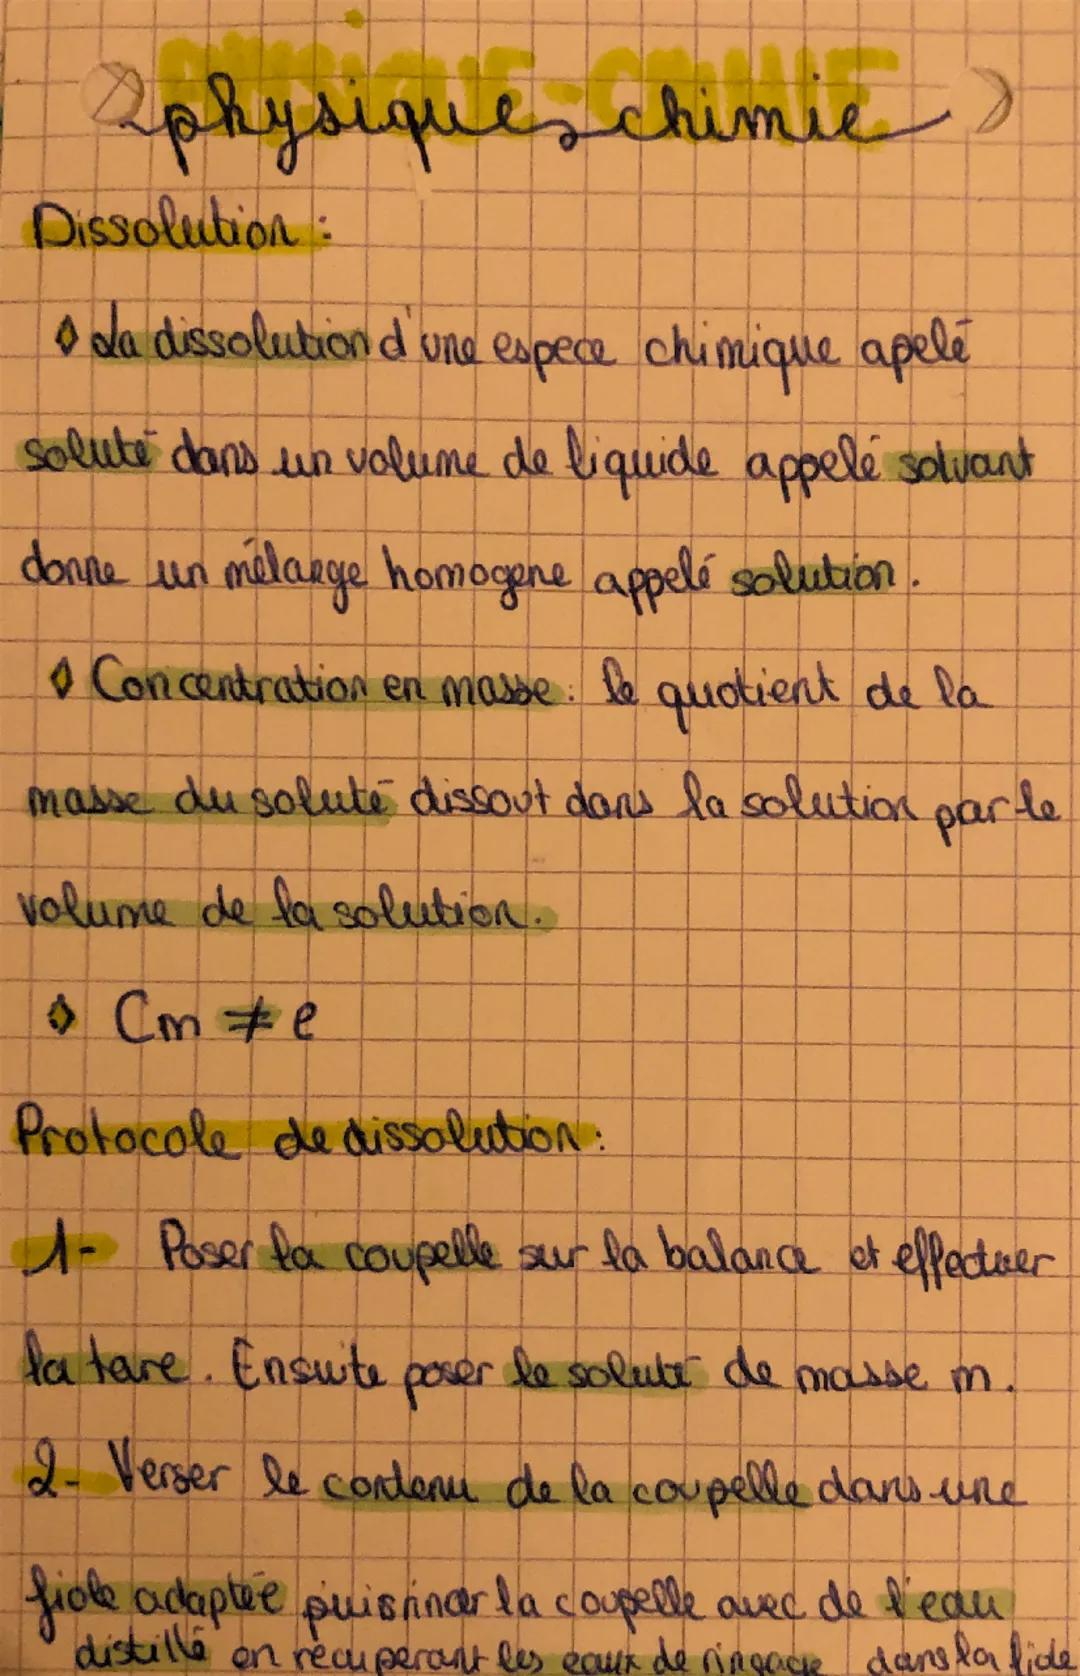 PHYSIQUE-CHIMIE
physique-chimie
Dissolution :
La dissolution d'une espece chimique apelé
soluté dans un volume de liquide appelé solvant
donne un mélange homogene appelé solution.
Concentration en masse : le quotient de la
masse du soluté dissout dans la solution par le
volume de la solution.
Cm ≠ e
Protocole de dissolution :
1- Poser la coupelle sur la balance et effectuer
la tare. Ensuite poser le soluté de masse m.
2- Verser le contenu de la coupelle dans une
fiole adaptée puis rincer la coupelle avec de l'eau
distillé en recuperant les eaux de rinçage dans la fiole